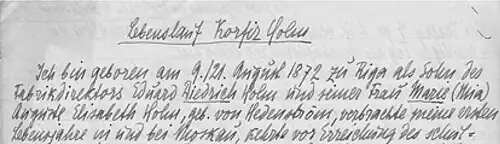 Lebenslauf Korfiz Holm
Ich bin geboren am 9./21. August 1872 zu Riga als Sohn des
Fabrikdirektors Eduard Diedrich Holm und seiner Frau Marie (Mia)
Auguste Elisabeth Holm, geb. von Hedenström, verbrachte meine ersten
Lebensjahre in und bei Moskau, kehrte vor Erreichung des schul-